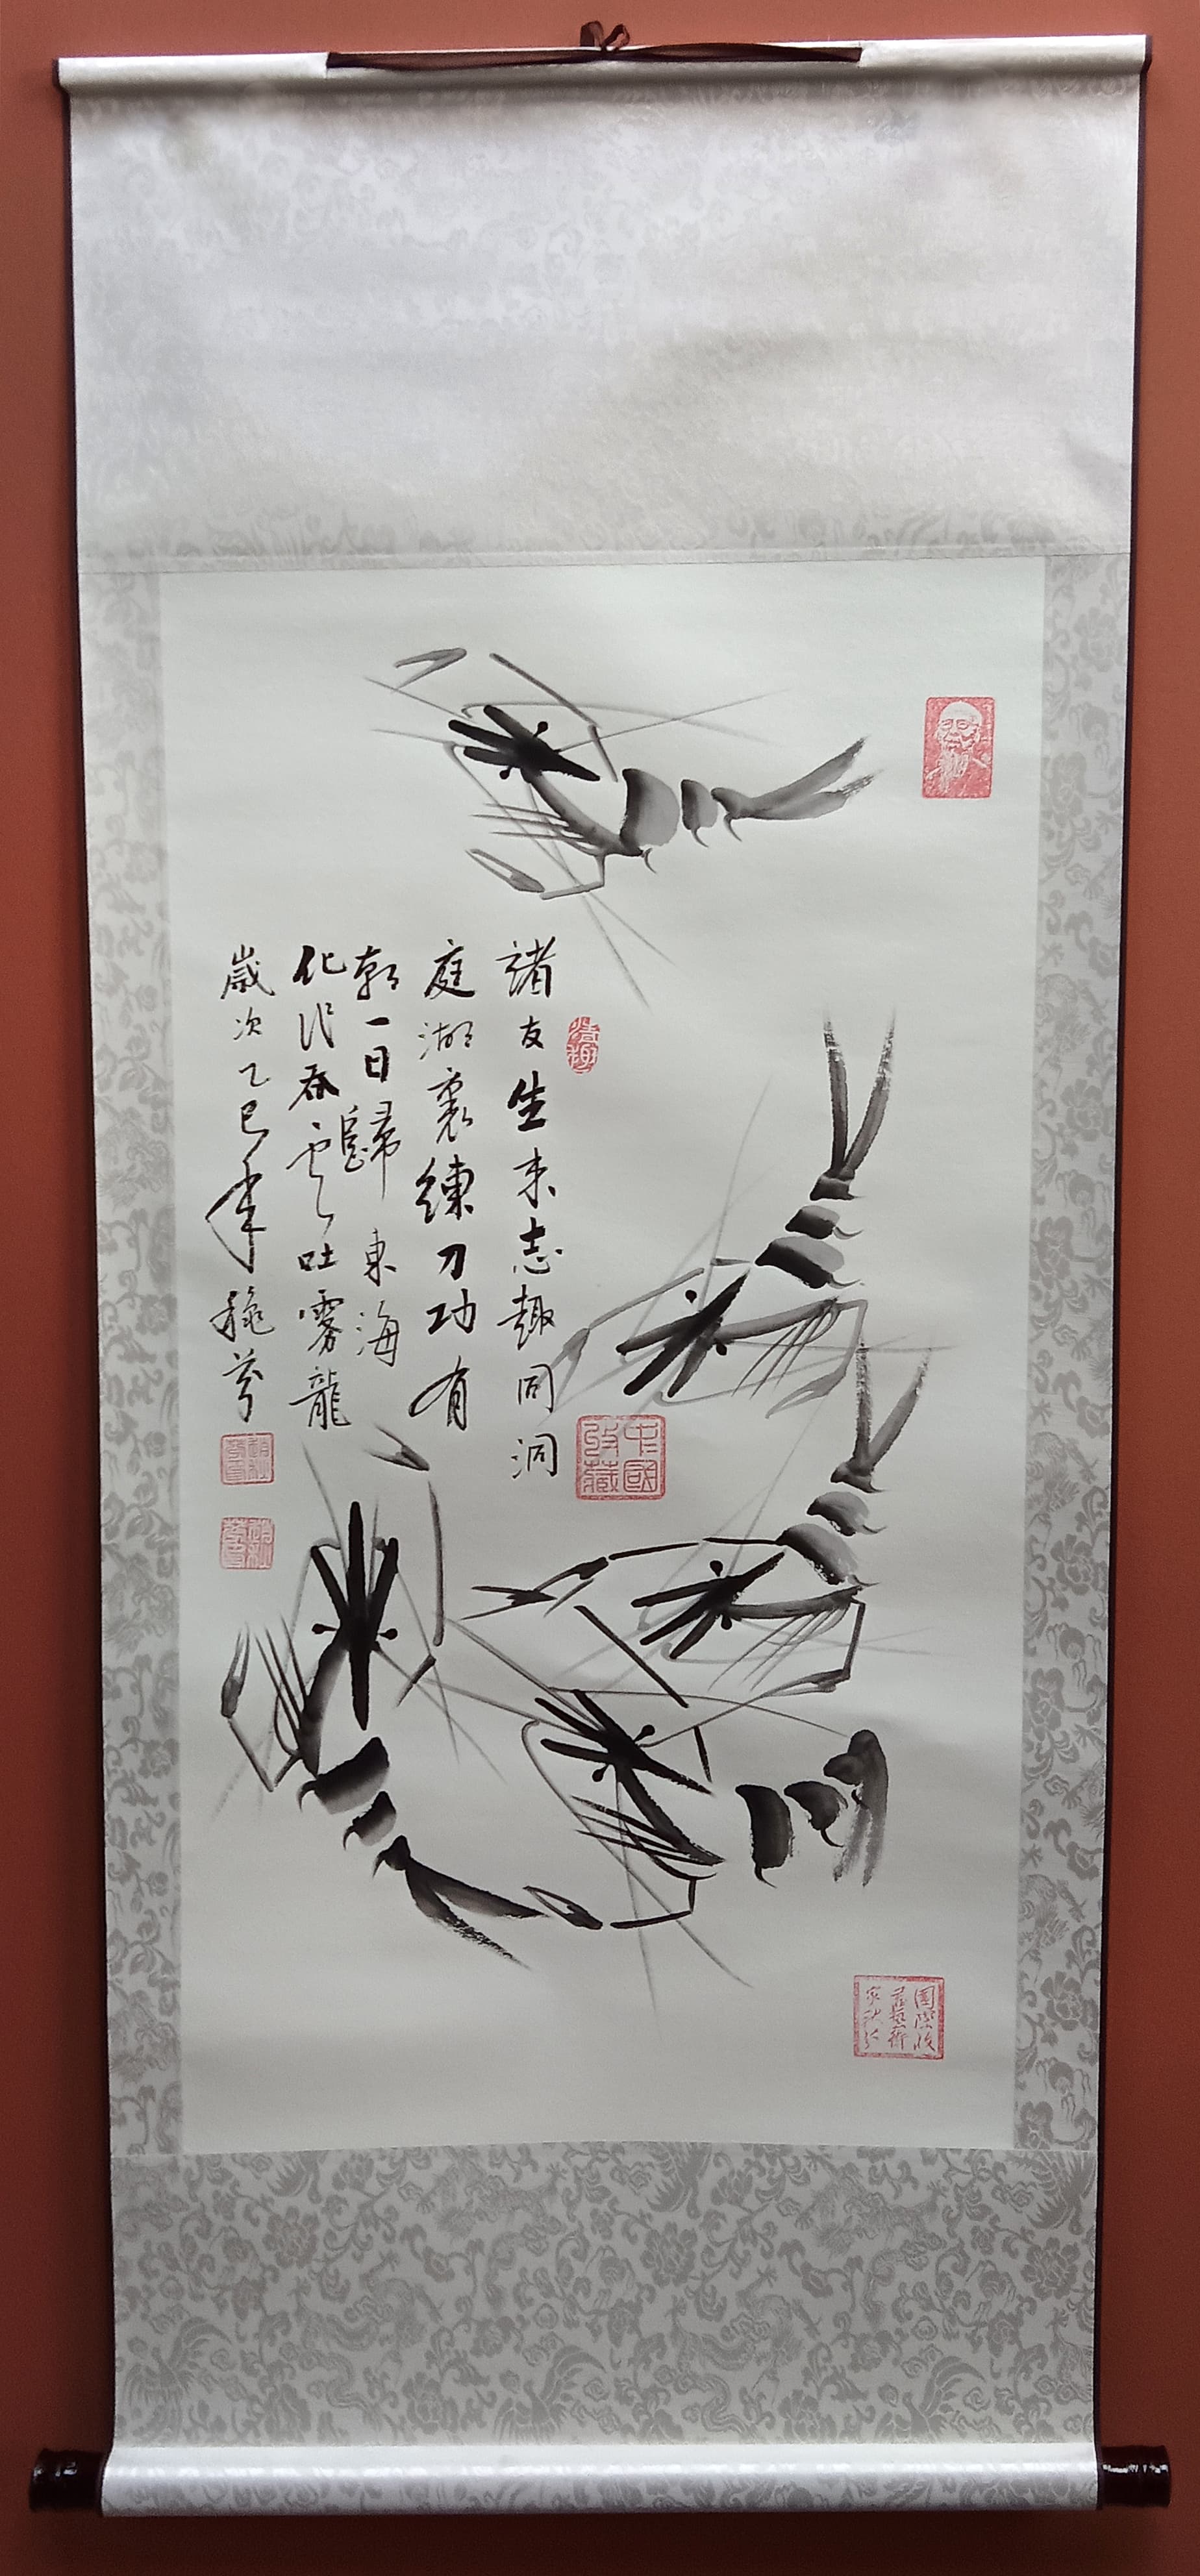 諸友生来志趣同洞
庭湖裏練刀功有
朝一日歸東海
化作吞雲吐霧龍
歲次乙巳年穐
情趣
中國收藏